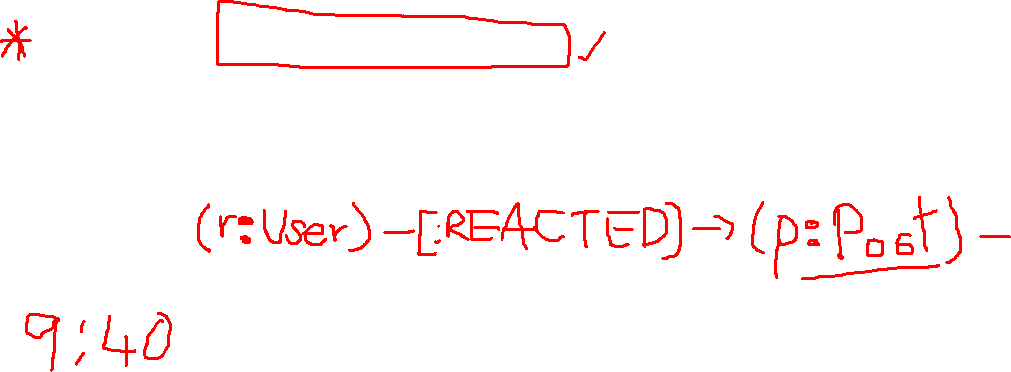 *
(r:User)-[:REACTED]->(p:Post)-
9:40